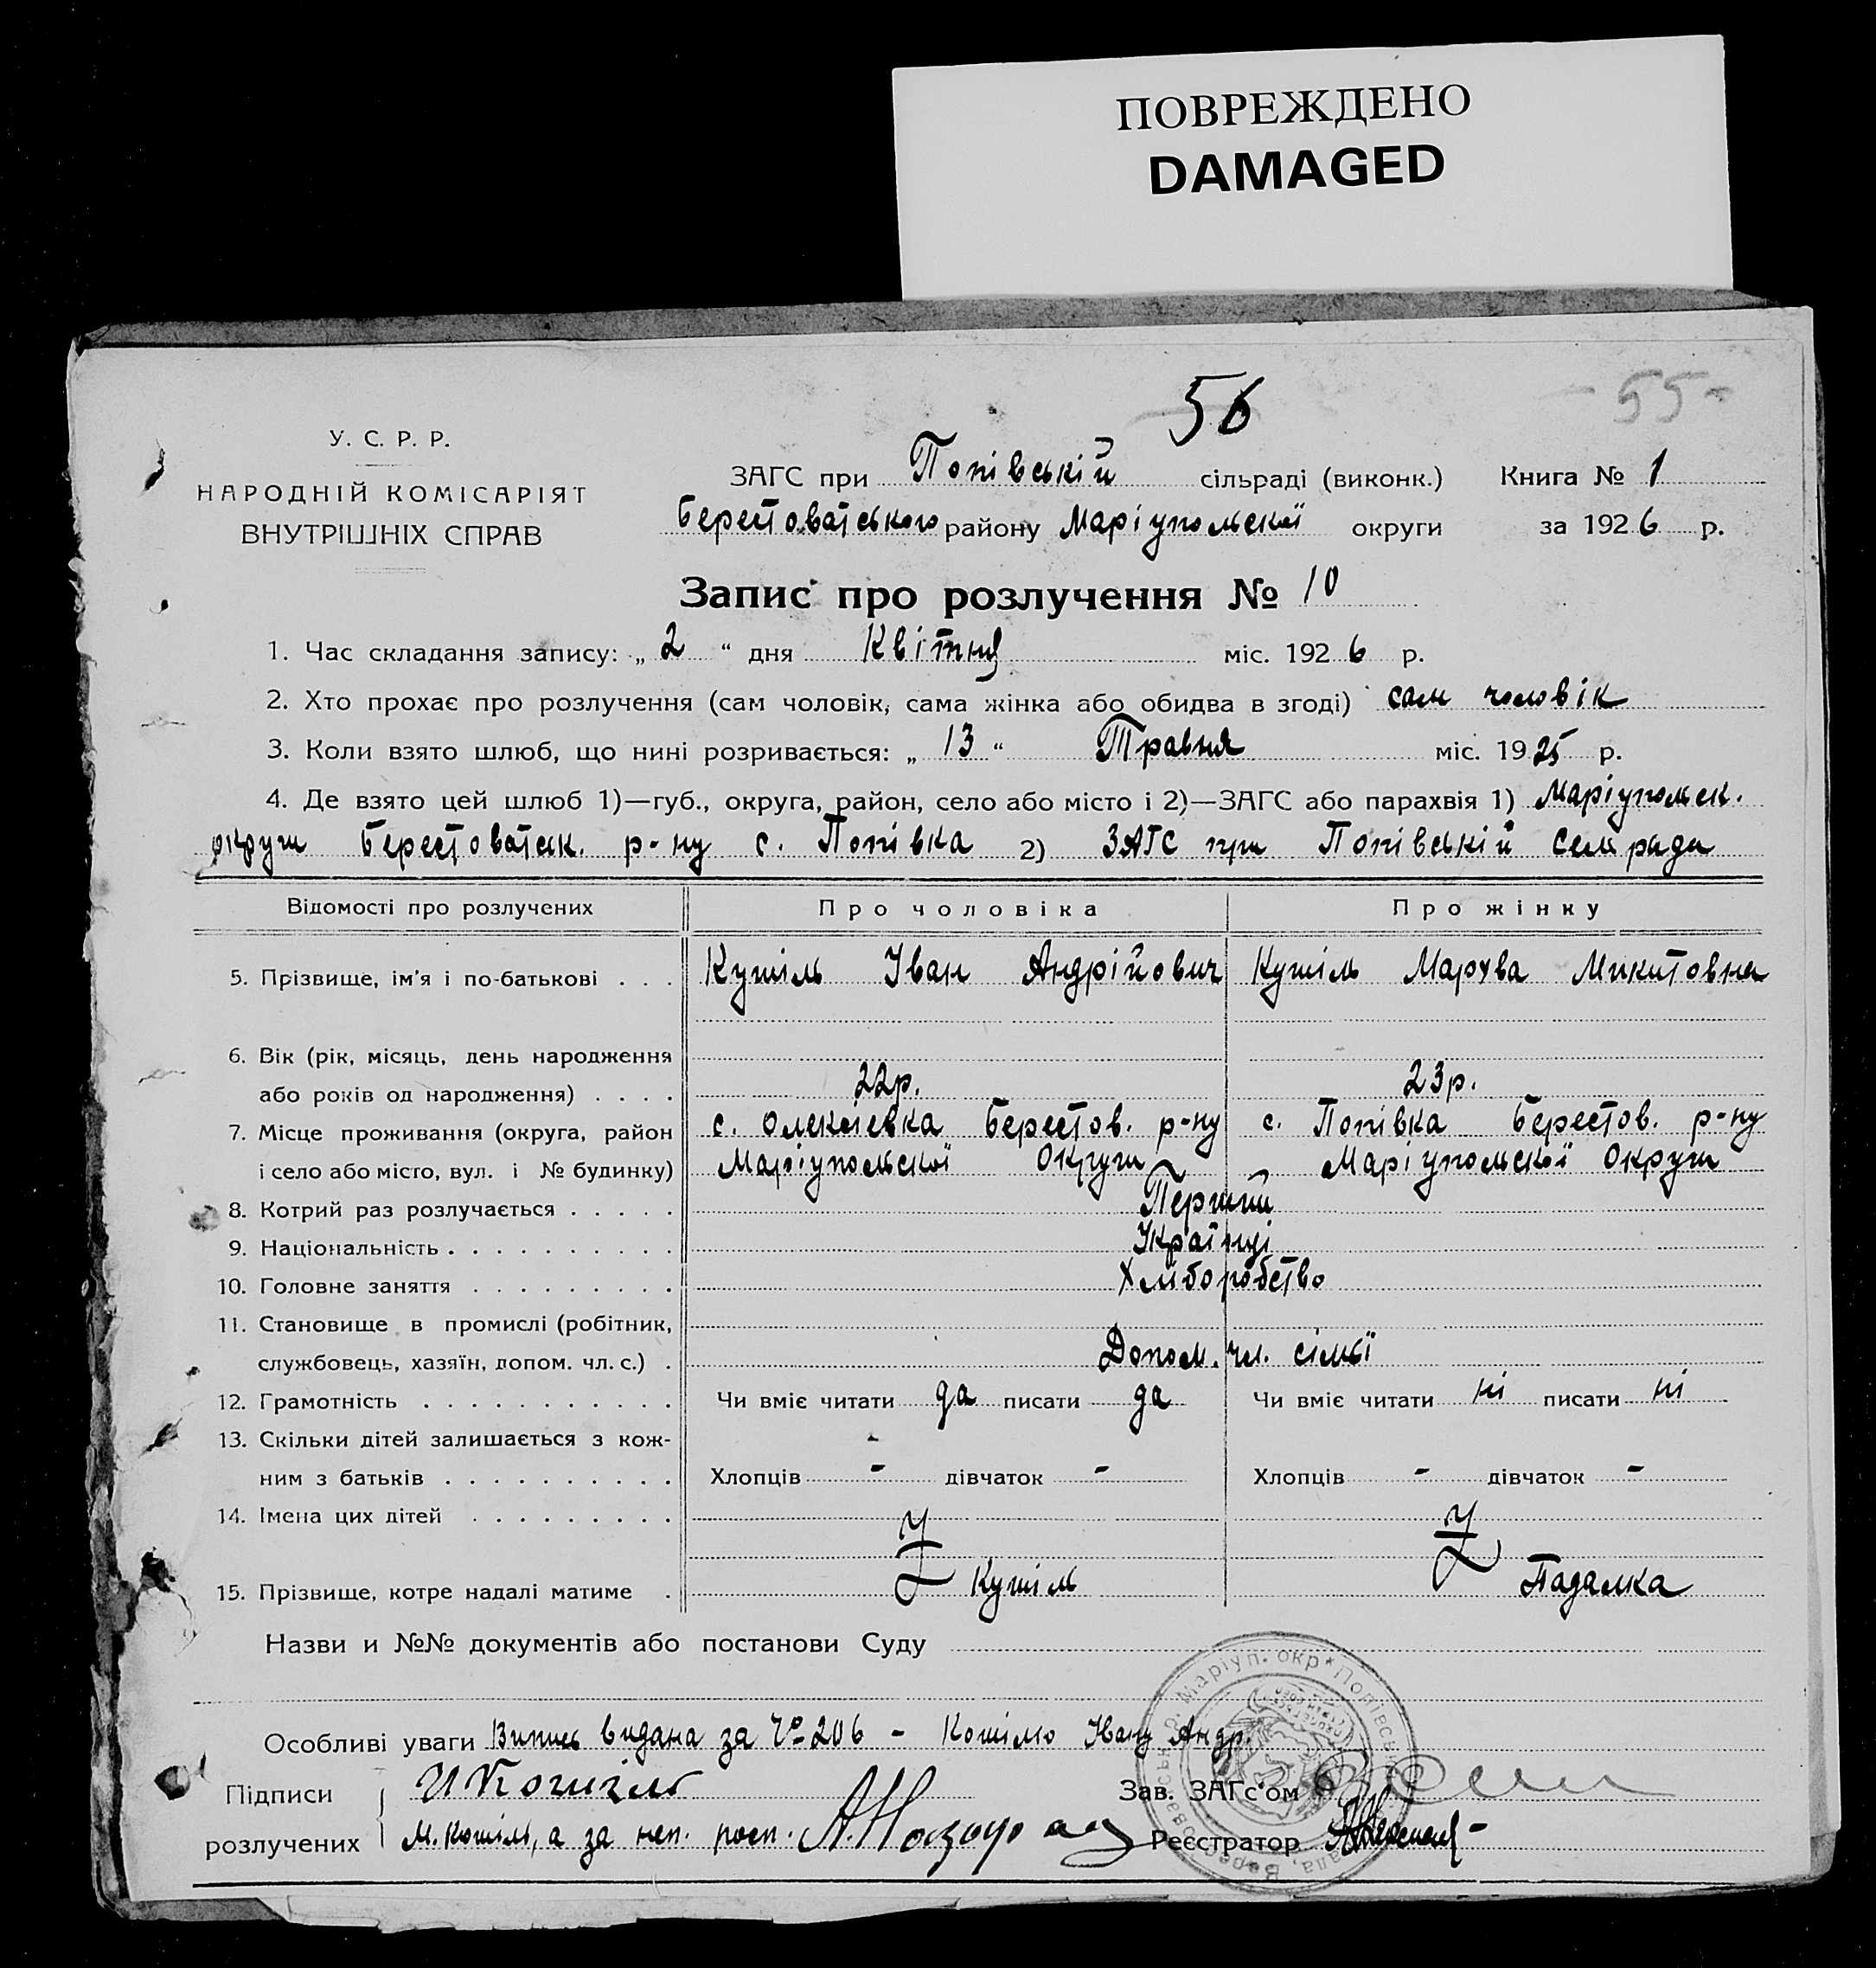 ПОВРЕЖДЕНО
DAMAGED
56
- 55 -
У. С. Р. Р.
НАРОДНІЙ КОМІСАРІЯТ
ВНУТРІШНІХ СПРАВ
ЗАГС при Попівській сільраді (виконк.) Книга № 1
Берестоватського району Маріупольскої округи за 1926 р.
Запис про розлучення № 10
1. Час складання запису: „ 2 “ дня Квітня міс. 1926 р.
2. Хто прохає про розлучення (сам чоловік, сама жінка або обидва в згоді) сам чоловік
3. Коли взято шлюб, що нині розривається: „ 13 “ Травня міс. 1925 р.
4. Де взято цей шлюб 1)—губ., округа, район, село або місто і 2)—ЗАГС або парахвія 1) Маріупольск.
округи Берестоватск. р-ну с. Попівка 2) ЗАГС при Попівській
Відомості про розлучених Про чоловіка Про жінку
5. Прізвище, ім'я і по-батькові . . . Кушіль Іван Андрійович Кушіль Микитовна
6. Вік (рік, місяць, день народження
або років од народження) . . . . 22р. 23р.
7. Місце проживання (округа, район с. Берестов. р-ну с. Попівка Берестов. р-ну
і село або місто, вул. і № будинку) Маріупольскої Округи Маріупольскої Округи
8. Котрий раз розлучається . . . . . Перший
9. Національність . . . . . . . . . . Українці
10. Головне заняття . . . . . . . . . Хліборобство
11. Становище в промислі (робітник,
службовець, хазяїн, допом. чл. с.) . Допом. чл. сімьї
12. Грамотність . . . . . . . . . . . Чи вміє читати да писати да Чи вміє читати ні писати ні
13. Скільки дітей залишається з кож-
ним з батьків . . . . . . . . . . Хлопців - дівчаток - Хлопців - дівчаток -
14. Імена цих дітей . . . . . . . . .
15. Прізвище, котре надалі матиме . Кушіль Падалка
Назви и №№ документів або постанови Суду
Особливі уваги Випись видана за № 206 - Кошілю Ивану Андр.
Підписи И Кошіль Зав. ЗАГс'ом
розлучених М. Кошіль, а за неп. росп. Реєстратор